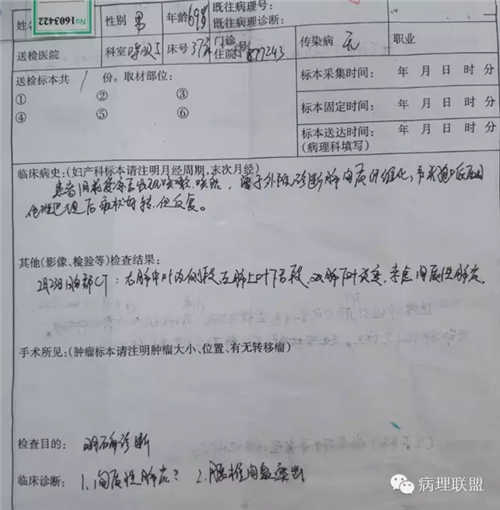 No1603422
姓名 性别 男 年龄 69岁 既往病理号:
既往病理诊断:
送检医院 科室 呼吸I 床号 37床 门诊 住院号: 877243 传染病 无 职业
送检标本共 1 份。取材部位:
① ② ③
④ ⑤ ⑥
标本采集时间: 年 月 日 时
标本固定时间: 年 月 日 时
标本送达时间: 年 月 日 时
(病理科填写)
临床病史:(妇产科标本请注明月经周期,末次月经)
患者 咳嗽、咳痰, 于外院诊断肺间质纤维化,
后 好转,但反复。
其他(影像、检验等)检查结果:
2月23日胸部CT:右肺中叶内侧段,左肺上叶下舌段,双肺下叶 ,考虑间质性肺炎。
手术所见:(肿瘤标本请注明肿瘤大小、位置、有无转移瘤)
检查目的: 明确诊断
临床诊断: 1.间质性肺炎? 2.腰椎间盘突出
病理联盟